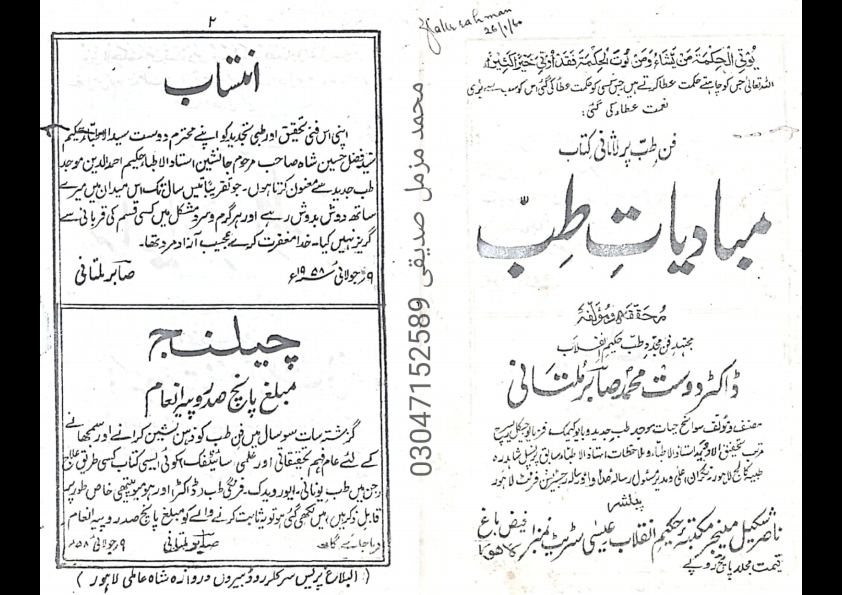 یُؤتِی الْحِکْمَۃَ مَنْ یَّشَاءُ وَمَنْ یُّؤْتَ الْحِکْمَۃَ فَقَدْ اُوْتِیَ خَیْرًا کَثِیْرًا
اللہ تعالیٰ جس کو چاہتے حکمت عطا کرتے ہیں جس کسی کو حکمت عطا کی گئی اس کو سب سے بڑی
نعمت عطاء کی گئی:
فن طب پر لاثانی کتاب
مبادیاتِ طِبّ
محققہ و مؤلفہ
مجتہد فن مجدد طب حکیم انقلاب
ڈاکٹر دوست محمد صابر ملتانی
مصنف و مؤلف سوانح حیات موجد طب جدید و بایوکیمک،
طبیہ کالج لاہور، نگران اعلیٰ و مدیر مسئول رسالہ
پبلشر
ناصر شکیل مینجر مکتبہ حکیم انقلاب عیسیٰ سٹریٹ نمبر فیض باغ لاہور
قیمت مجلد پانچ روپے
26/1/60
محمد مزمل صدیقی 03047152589
۲
انتساب
اپنی اس فنی تحقیق اور طبی تجدید کو اپنے محترم دوست سید الاطباء حکیم
سید فضل حسین شاہ صاحب مرحوم جانشین استاد الاطباء حکیم احمد الدین موجد
طب جدید سے معنون کرتا ہوں۔ جو تقریباً بائیس سال تک اس میدان میں میرے
ساتھ دوش بدوش رہے اور ہر گرم و سرد مشکل میں کسی قسم کی قربانی سے
گریز نہیں کیا۔ خدا مغفرت کرے عجیب آزاد مرد تھا۔
۹ جولائی ۱۹۵۸ء صابر ملتانی
چیلنج
مبلغ پانچ صد روپیہ انعام
گزشتہ سات سو سال میں فن طب کو ذہن نشین کرانے اور سمجھانے
کے لئے عام فہم تحقیقاتی اور علمی سائنٹفک، اکوئی ایسی کتاب کسی طریق علاج
(جن میں طب یونانی۔ ایورویدک۔ فرنگی طب (ڈاکٹر) اور ہومیوپیتھی خاص طور پر
قابل ذکر ہیں) میں لکھی گئی ہو تو یہ ثابت کرنے والے کو مبلغ پانچ صد روپیہ انعام
دیا جائے گا۔ صابر ملتانی ۹ جولائی ۵۸ء
(: البلاغ پریس سرکلر روڈ بیرون دروازہ شاہ عالمی لاہور )